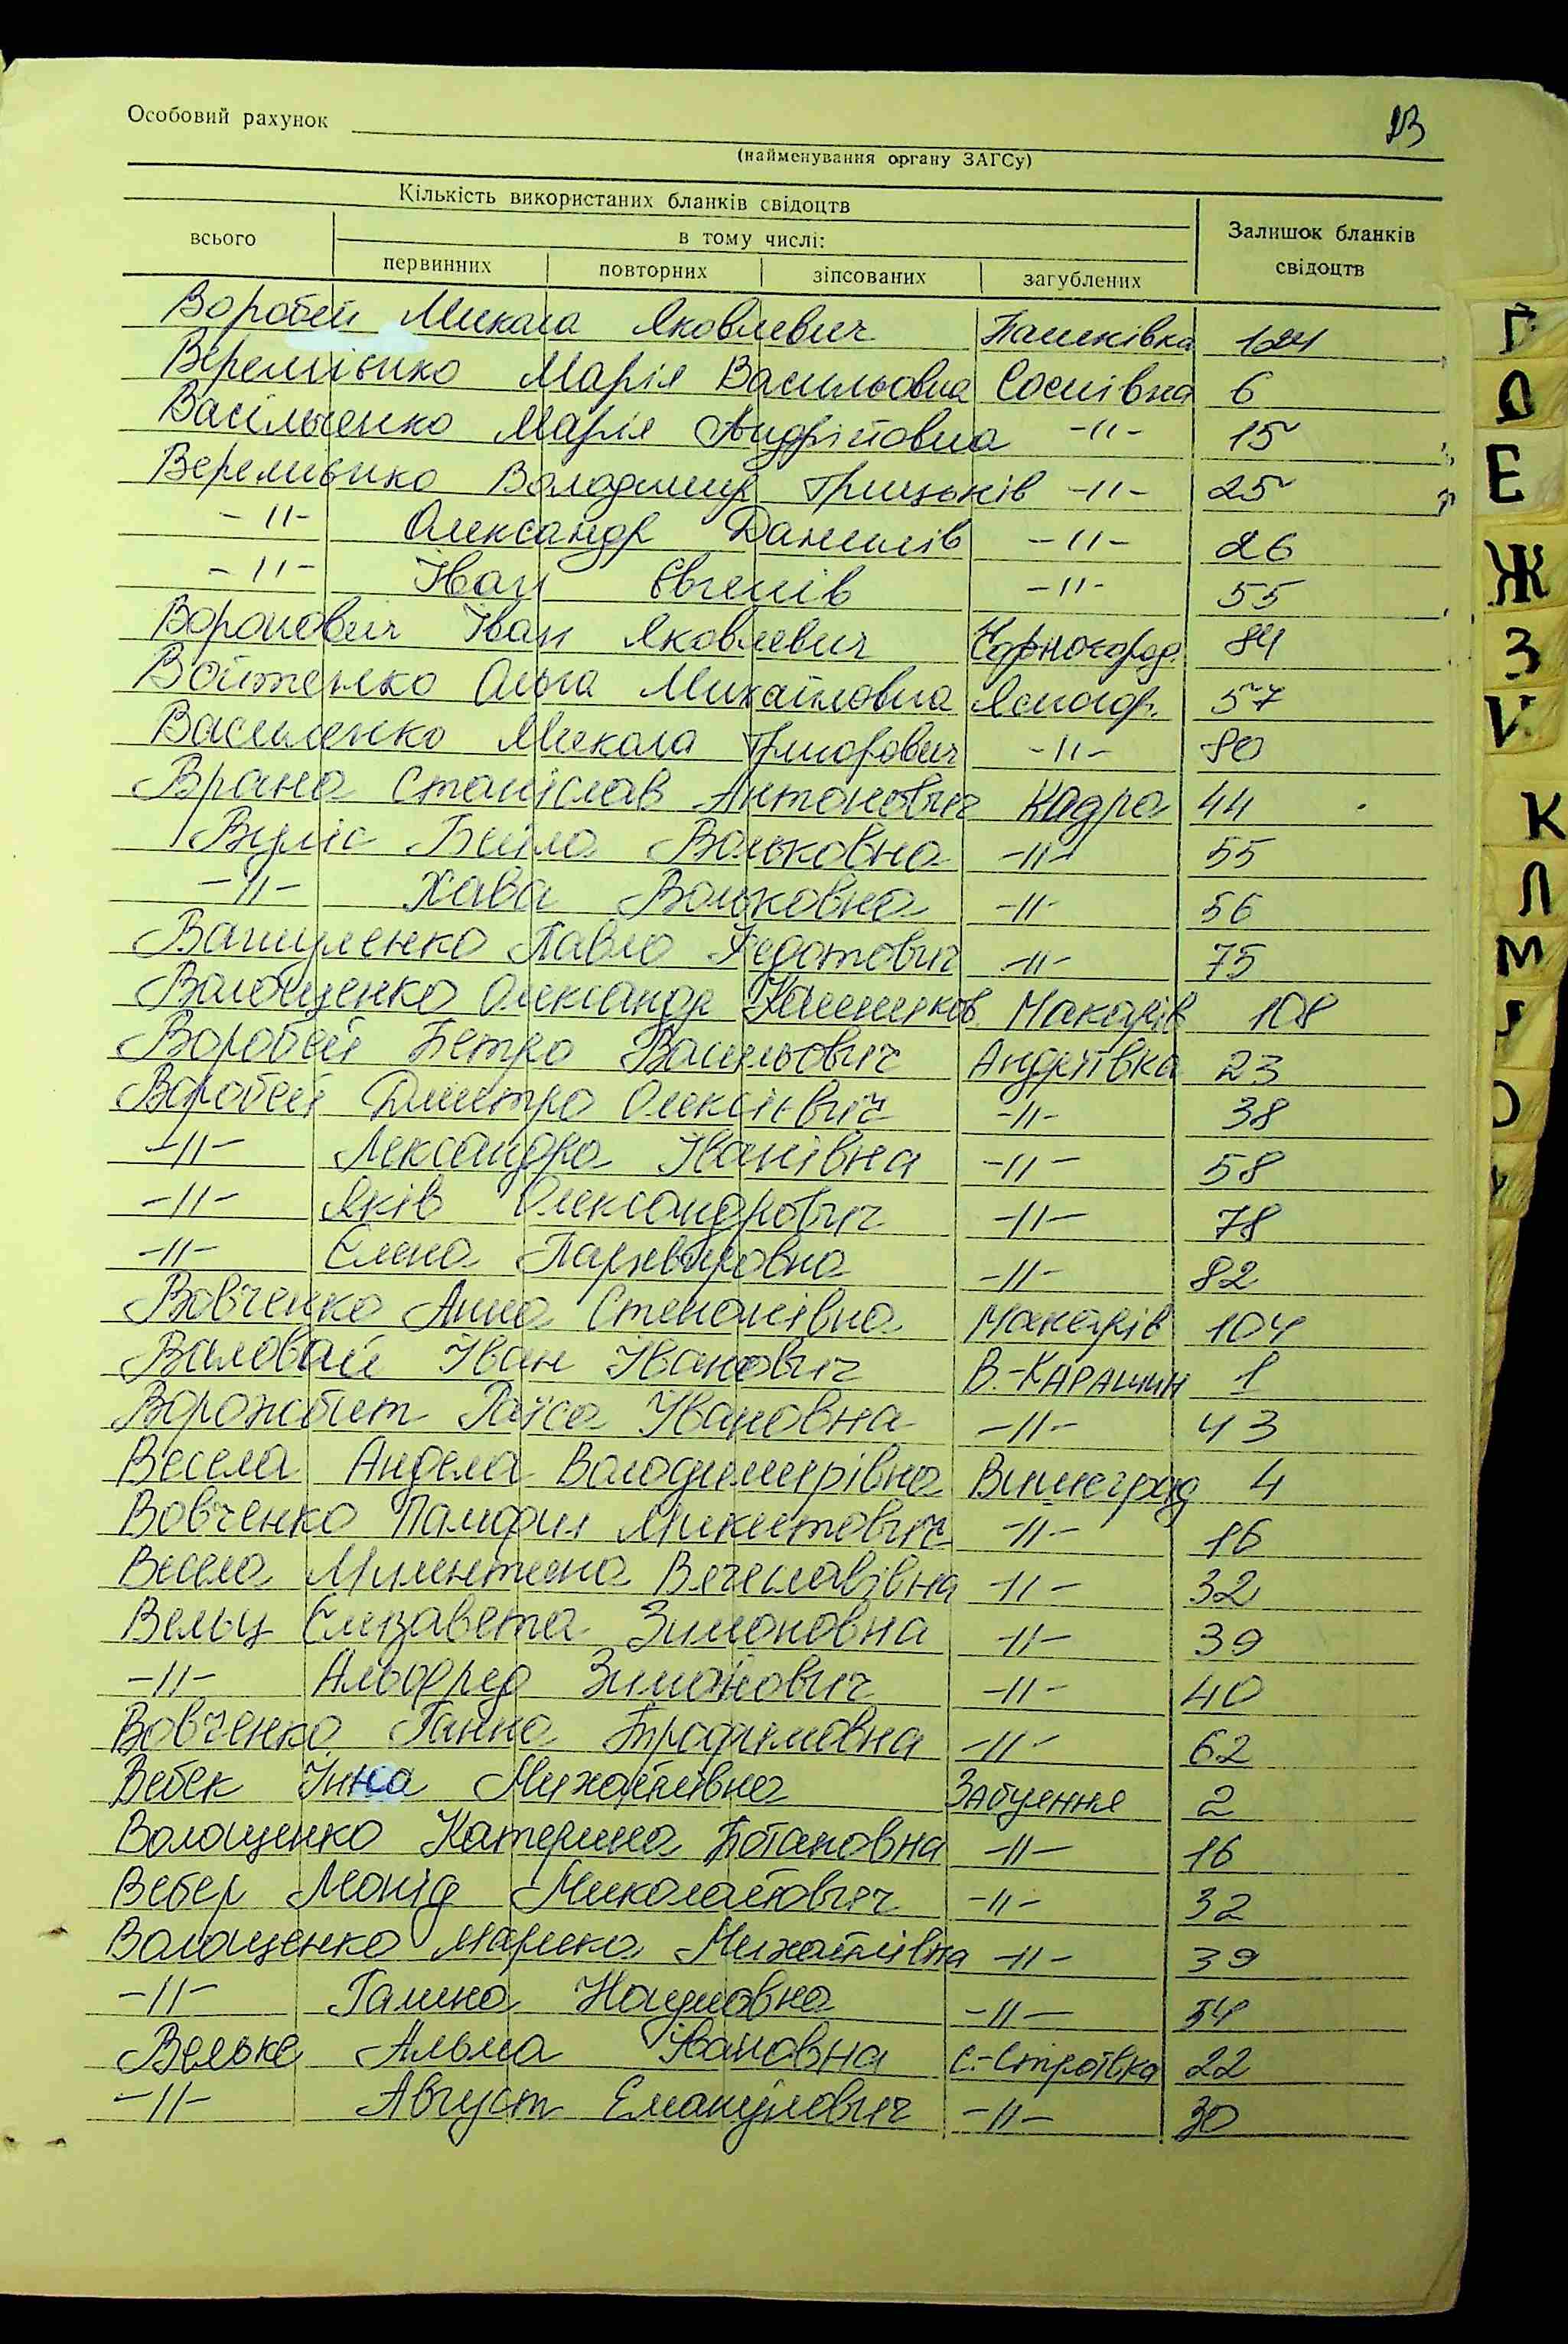 23
Особовий рахунок
(найменування органу ЗАГСу)
Кількість використаних бланків свідоцтв
всього
в тому числі:
Залишок бланків свідоцтв
первинних повторних зіпсованих загублених
Воробей Микола Яковлевич Пашківка 124
Веремієнко Марія Васильовна Соснівка 6
Васільченко Марія Андрійовна -//- 15
Веремієнко Володимир Грицьків -//- 25
-//- Олександр Данилів -//- 26
-//- Іван Євгенів -//- 55
Воронович Іван Яковлевич Чорногород. 84
Войтенко Ольга Михайловна Ясногор. 57
Василенко Микола Григорович -//- 80
Врана Станіслав Антонович Кадра 44
Вуліс Бейла Вольковна -//- 55
-//- Хава Вольковна -//- 56
Вашуленко Павло Федотович -//- 75
Волощенко Олександр Макарів 108
Воробей Петро Васильович Андріївка 23
Воробей Дмитро Олексієвич -//- 38
-//- Лександра Іванівна -//- 58
-//- Яків Олександрович -//- 78
-//- Єлена -//- 82
Вовченко Анна Степанівна Макарів 104
Валовай Іван Іванович В.-Карашин 1
Ворожбит Раїса Івановна -//- 43
Весела Андела Володимирівна Вишеград 4
Вовченко Памфил Микитович -//- 16
Весела Вячеславівна -//- 32
Вельц Єлизавета Зимоновна -//- 39
-//- Альфред Зимонович -//- 40
Вовченко Ганна Трофимовна -//- 62
Вебек Інна Михайлівна Забуяння 2
Волощенко Катерина Потаповна -//- 16
Вебер Леонід Миколайович -//- 32
Волощенко Марика Михайлівна -//- 39
-//- Галина Наумовна -//- 54
Вельке Альма Івановна С.-Строївка 22
-//- Август Емануілович -//- 30
Г
Д
Е
Ж
З
И
К
Л
М